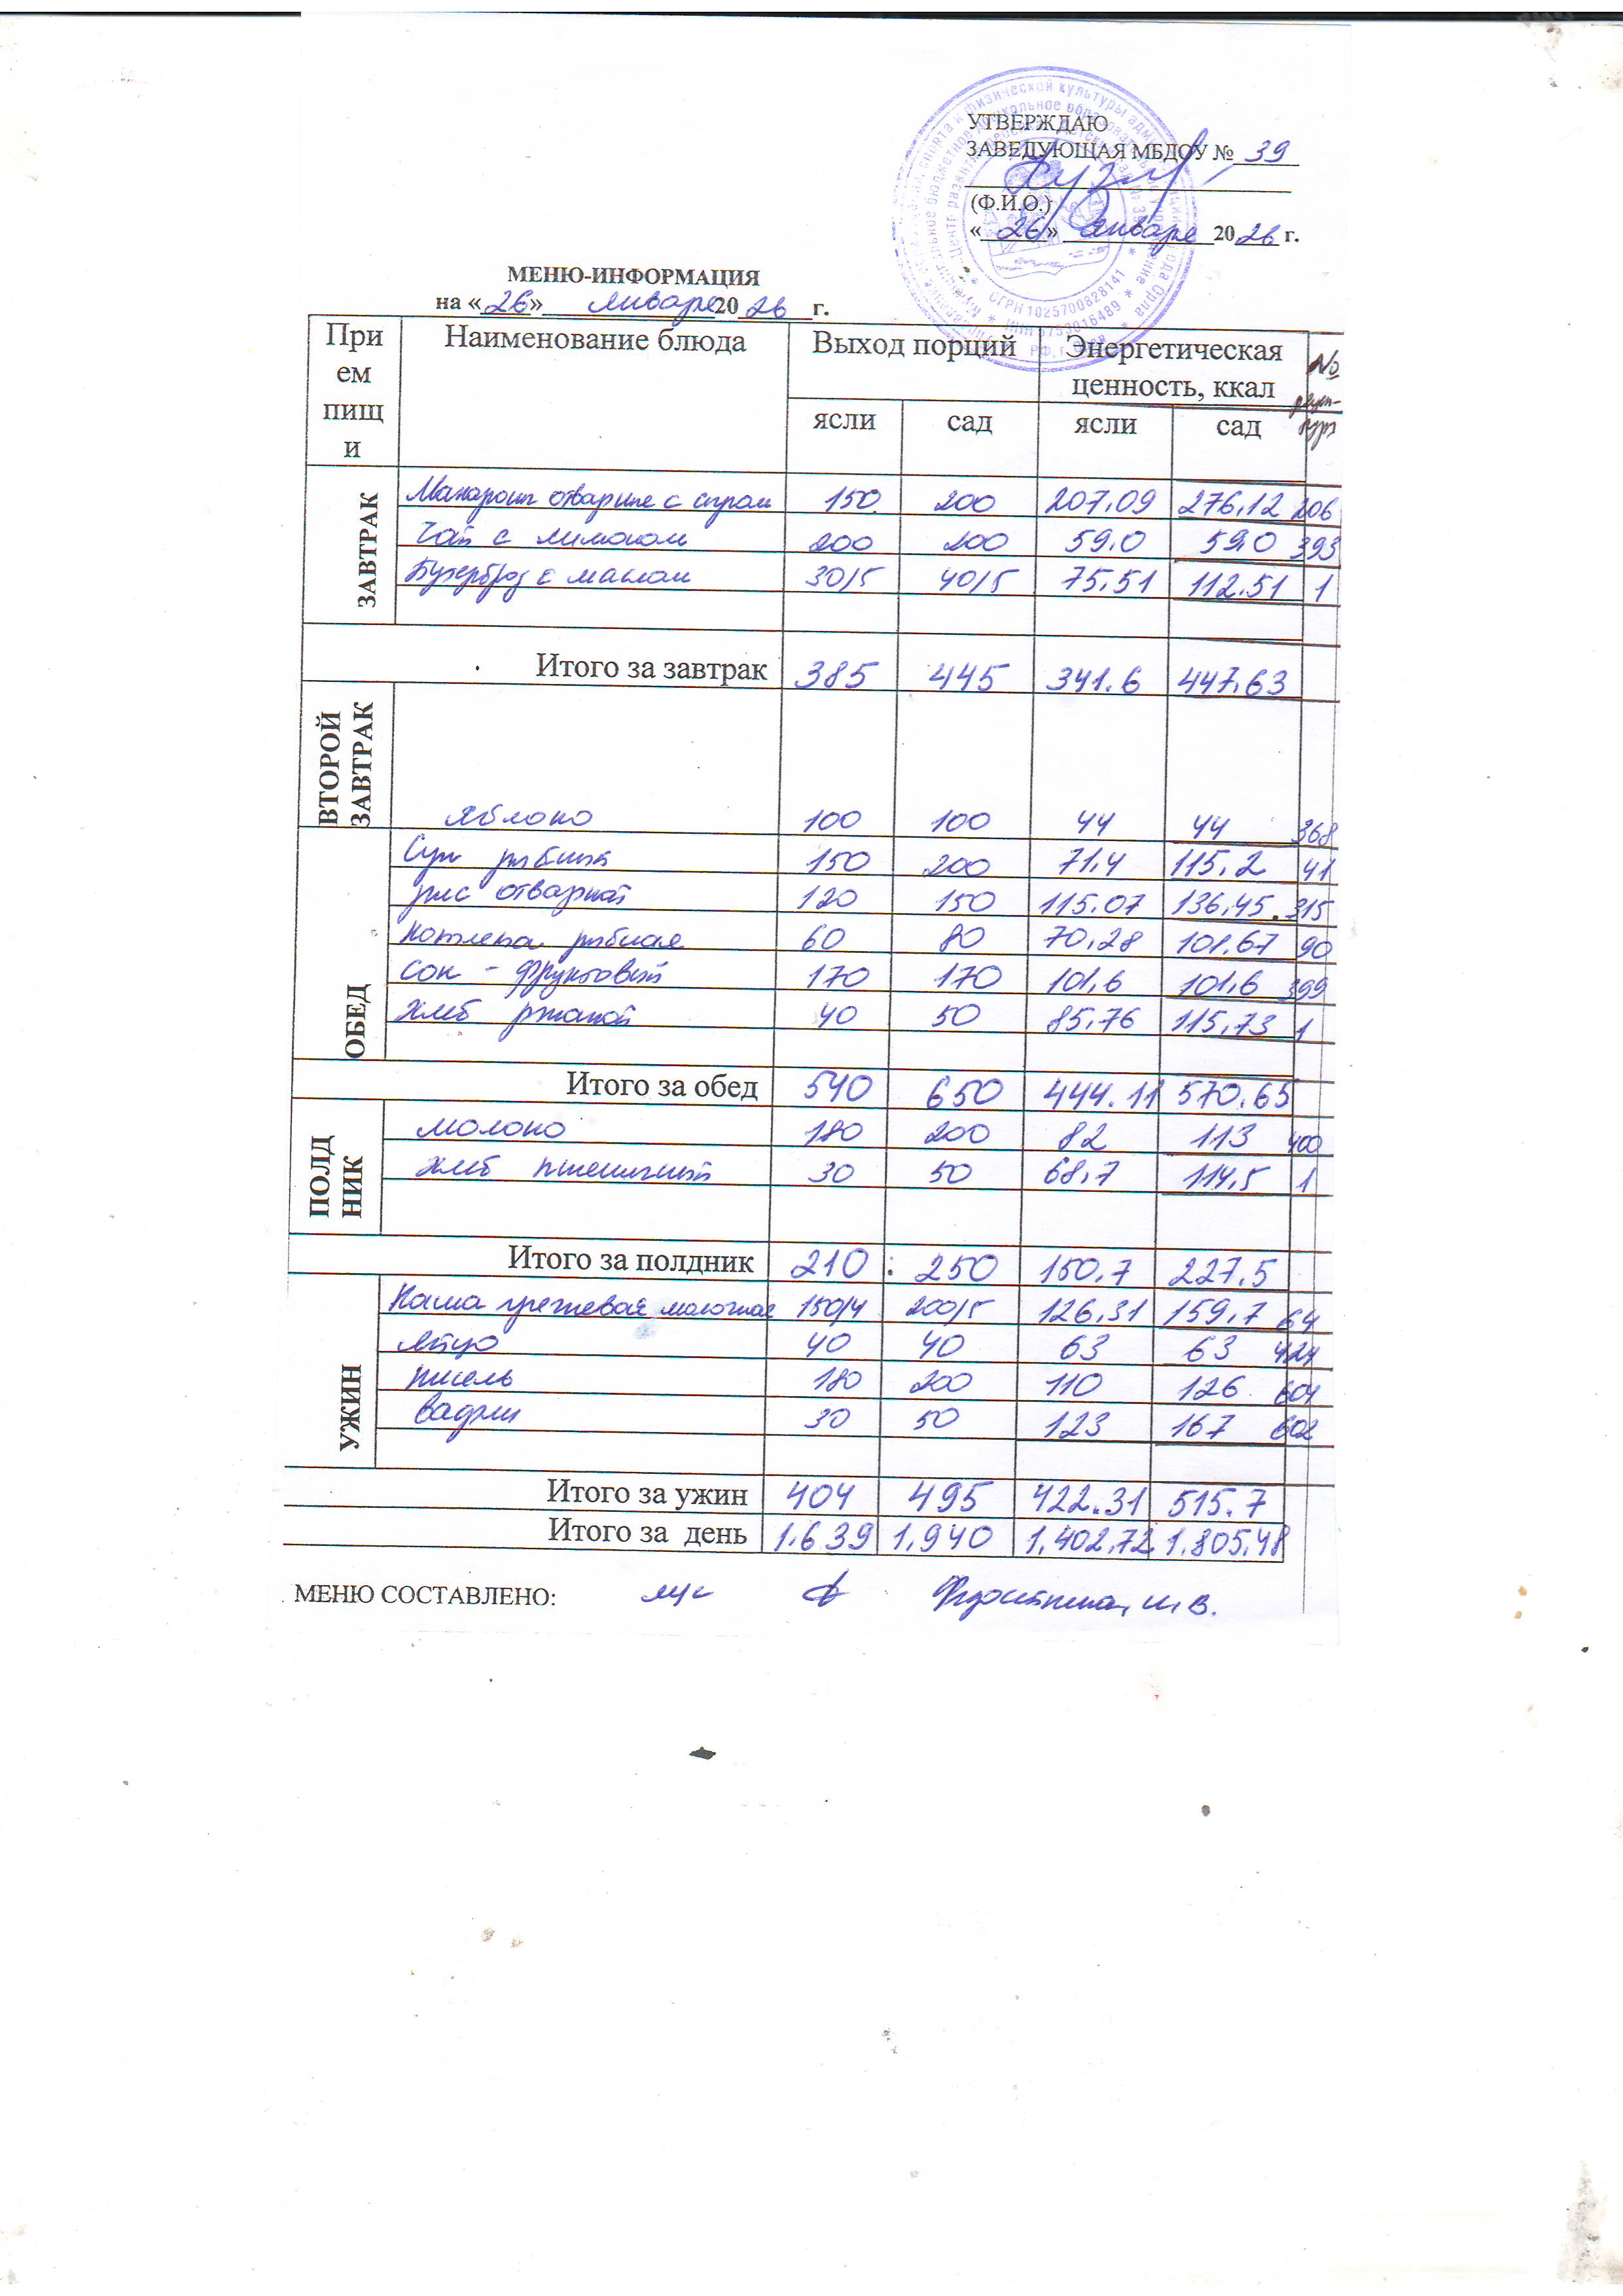 УТВЕРЖДАЮ
ЗАВЕДУЮЩАЯ МБДОУ № 39
(Ф.И.О.)
«26» января 2026 г.
ОГРН 1025700828141
МЕНЮ-ИНФОРМАЦИЯ
на «26» января 2026 г.
Прием пищи Наименование блюда Выход порций Энергетическая ценность, ккал №
ясли сад ясли сад
ЗАВТРАК
Макароны отварные с сыром 150 200 207.09 276.12 206
Чай с лимоном 200 200 59.0 59.0 393
Бутерброд с маслом 30/5 40/5 75.51 112.51 1
Итого за завтрак 385 445 341.6 447.63
ВТОРОЙ ЗАВТРАК
яблоко 100 100 44 44 368
ОБЕД
Суп рыбный 150 200 71.4 115.2 41
рис отварной 120 150 115.07 136.45 315
котлета рыбная 60 80 70.28 101.67 90
сок - фруктовый 170 170 101.6 101.6 399
хлеб ржаной 40 50 85.76 115.73 1
Итого за обед 540 650 444.11 570.65
ПОЛДНИК
молоко 180 200 82 113 400
хлеб пшеничный 30 50 68.7 114.5 1
Итого за полдник 210 250 150.7 227.5
УЖИН
Каша гречневая молочная 150/4 200/5 126.31 159.7 64
яйцо 40 40 63 63 424
кисель 180 200 110 126 604
вафли 30 50 123 167 602
Итого за ужин 404 495 422.31 515.7
Итого за день 1.639 1.940 1.402.72 1.805.48
МЕНЮ СОСТАВЛЕНО: